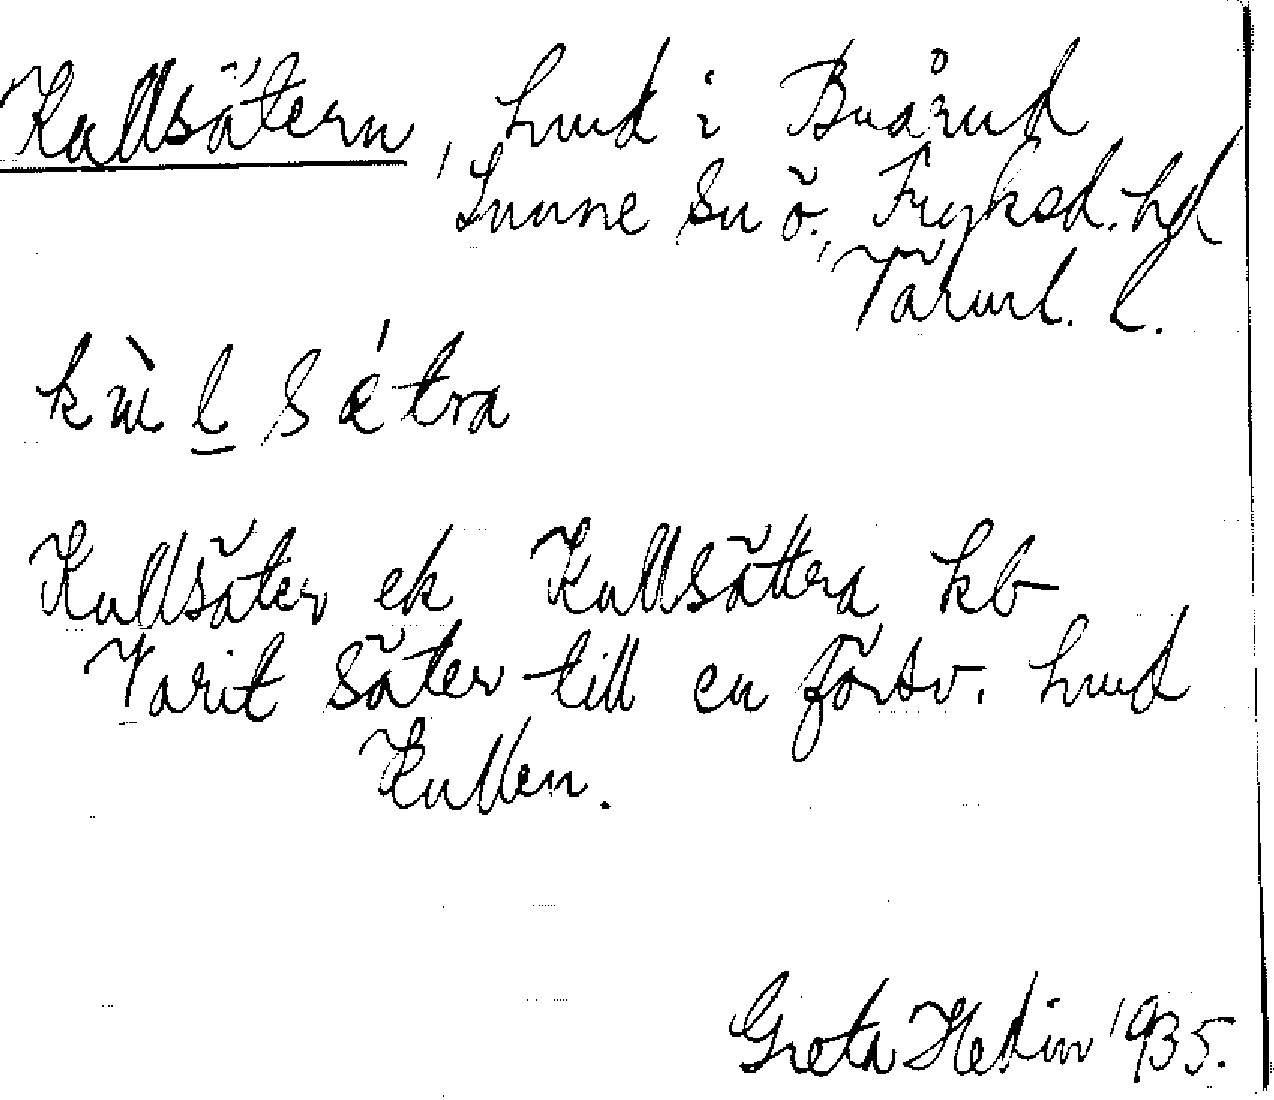 Kullsätern, hmd i Buårud
Sunne sn ö. Fryksd. hd
Värml. l.
kùl sǽtra
Kullsäter ek Kullsättra kb
Varit säter till en försv. hmd
Kullen.
Greta Hedin 1935.